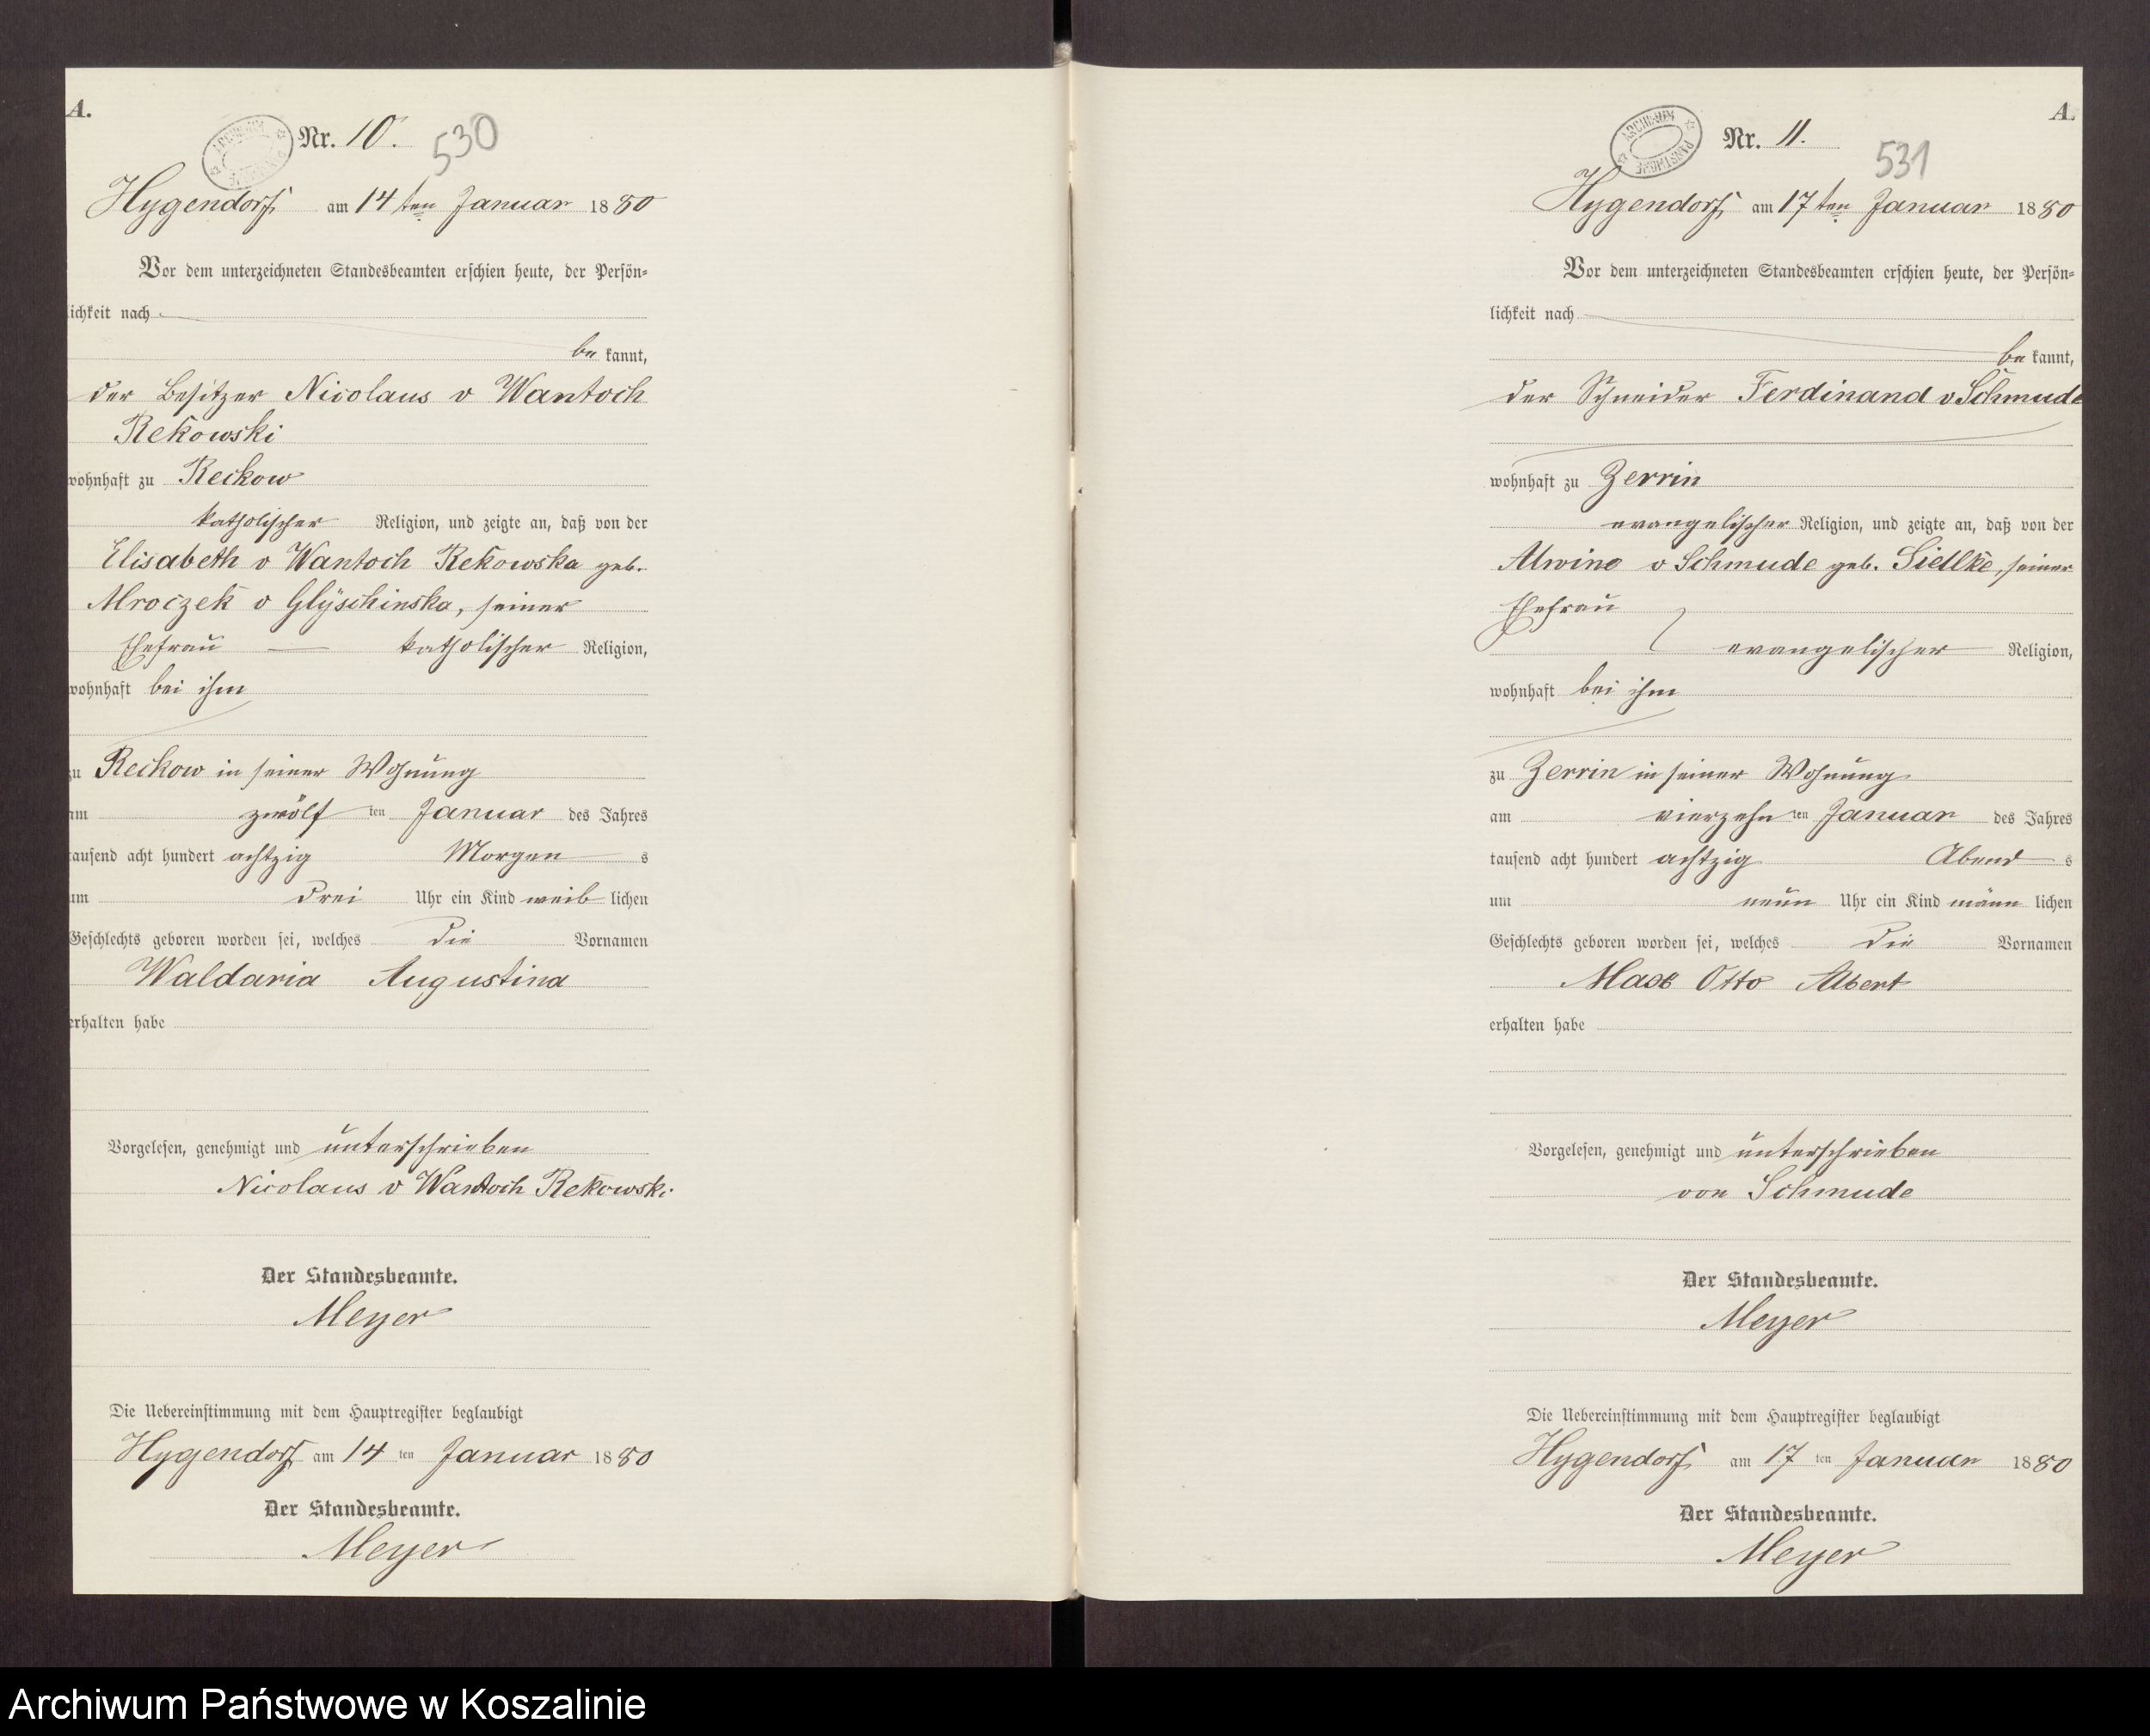 A.
Nr. 10.
530
Hygendorf am 14ten Januar 1880
Vor dem unterzeichneten Standesbeamten erschien heute, der Persön-
lichkeit nach
be kannt,
der Besitzer Nicolaus v Wantoch
Rekowski
wohnhaft zu Reckow
katholischer Religion, und zeigte an, daß von der
Elisabeth v Wantoch Rekowska geb.
Mroczek v Glÿschinska, seiner
Ehefrau katholischer Religion,
wohnhaft bei ihm
zu Reckow in seiner Wohnung
am zwölf ten Januar des Jahres
tausend acht hundert achtzig Morgen s
um drei Uhr ein Kind weib lichen
Geschlechts geboren worden sei, welches die Vornamen
Waldaria Augustina
erhalten habe
Vorgelesen, genehmigt und unterschrieben
Nicolaus v Wantoch Rekowski
Der Standesbeamte.
Meyer
Die Uebereinstimmung mit dem Hauptregister beglaubigt
Hygendorf am 14 ten Januar 1880
Der Standesbeamte.
Meyer
A.
ARCHIWUM PAŃSTWOWE
Nr. 11.
531
Hygendorf am 17ten Januar 1880
Vor dem unterzeichneten Standesbeamten erschien heute, der Persön-
lichkeit nach
be kannt,
der Schneider Ferdinand v Schmude
wohnhaft zu Zerrin
evangelischer Religion, und zeigte an, daß von der
Alwine v Schmude geb. Siellke, seiner
Ehefrau
evangelischer Religion,
wohnhaft bei ihm
zu Zerrin in seiner Wohnung
am vierzehn ten Januar des Jahres
tausend acht hundert achtzig Abend s
um neun Uhr ein Kind männ lichen
Geschlechts geboren worden sei, welches die Vornamen
Max Otto Albert
erhalten habe
Vorgelesen, genehmigt und unterschrieben
von Schmude
Der Standesbeamte.
Meyer
Die Uebereinstimmung mit dem Hauptregister beglaubigt
Hygendorf am 17 ten Januar 1880
Der Standesbeamte.
Meyer
Archiwum Państwowe w Koszalinie